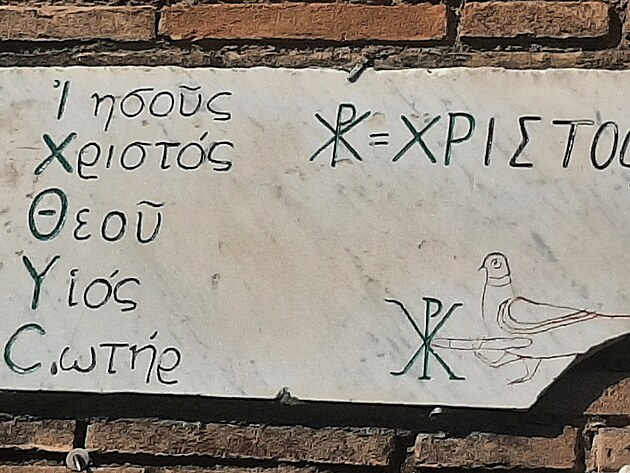 Ἰησοῦς
Χριστός
Θεοῦ
Υἱός
C.ωτήρ
☧ = ΧΡΙΣΤΟ
☧